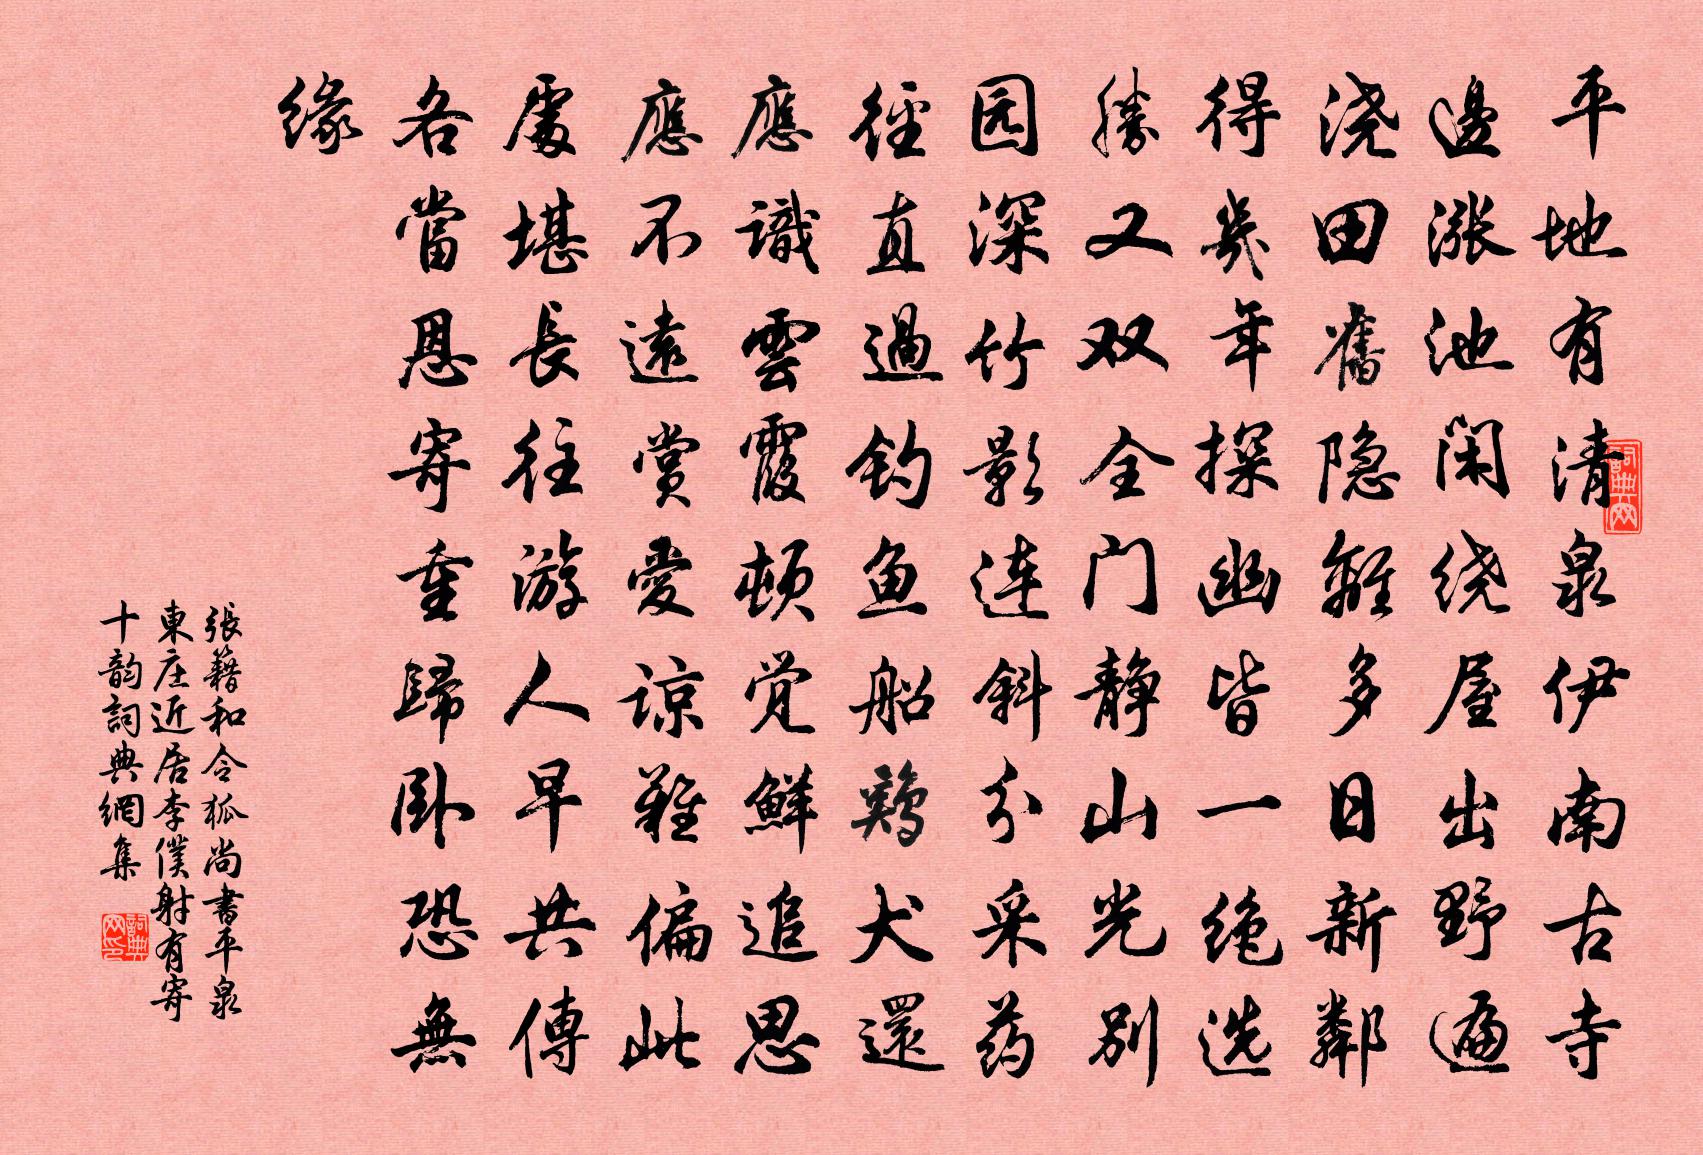 平地有清泉伊南古寺
邊漲池闲绕屋出野遍
浇田舊隐離多日新鄰
得幾年探幽皆一绝选
勝又双全门静山光别
园深竹影连斜分采药
徑直過钓鱼船鷄犬還
應識雲霞顿觉鮮追思
應不遠赏愛谅難偏此
處堪長往游人早共傳
各當恩寄重歸卧恐無
缘
張籍和令狐尚書平泉
東庄近居李僕射有寄
十韵詞典網集
詞典网
詞典网印